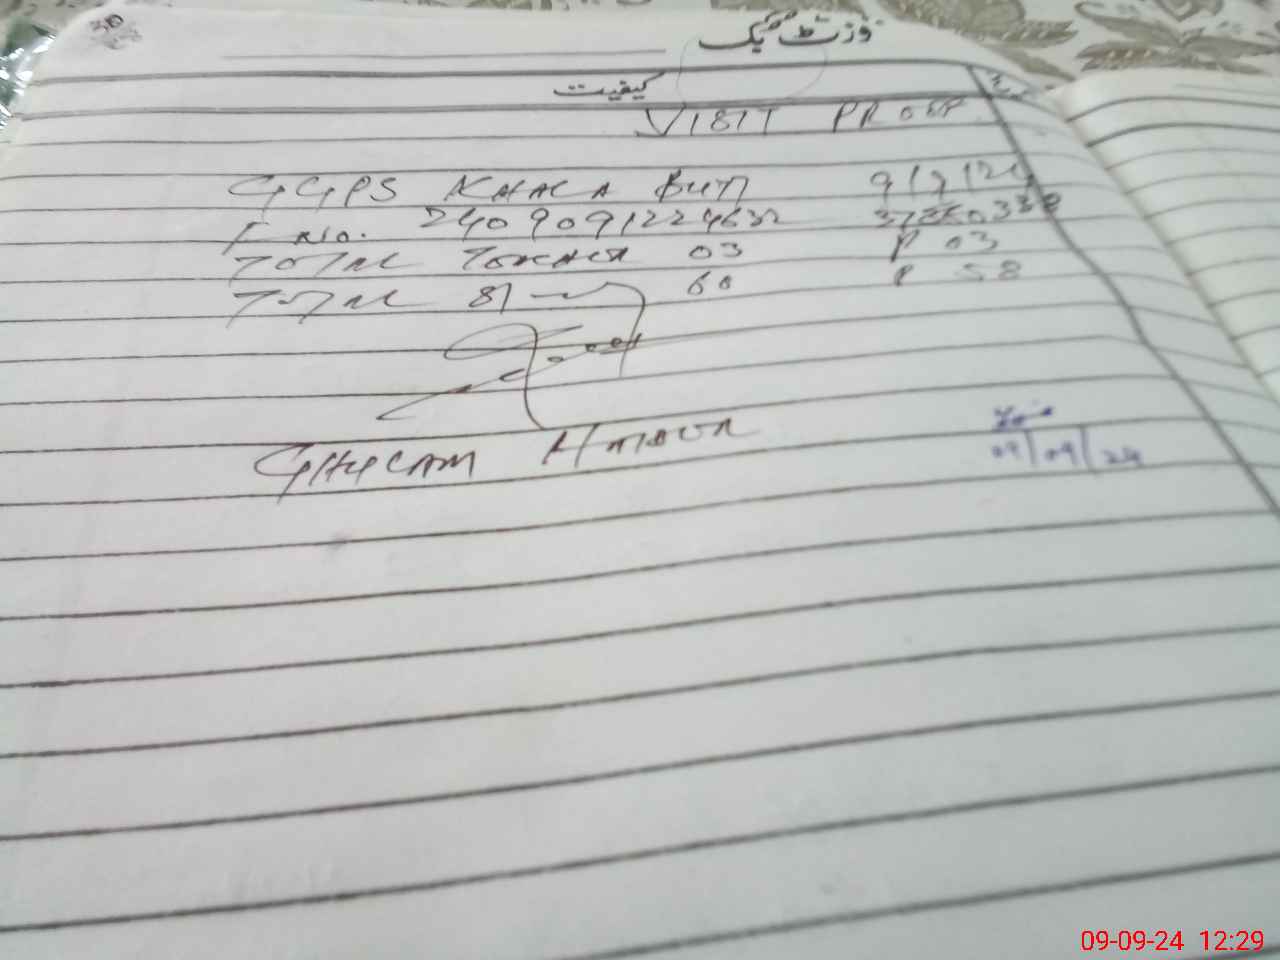 30
وزٹ بک
کیفیت
VISIT PROOF
GGPS KHALA BUTT 9/9/24
F No. 2409091224632 37350338
TOTAL TEACHER 03 P 03
TOTAL ST 60 P 58
GHULAM HAIDER
09/09/24
09-09-24 12:29